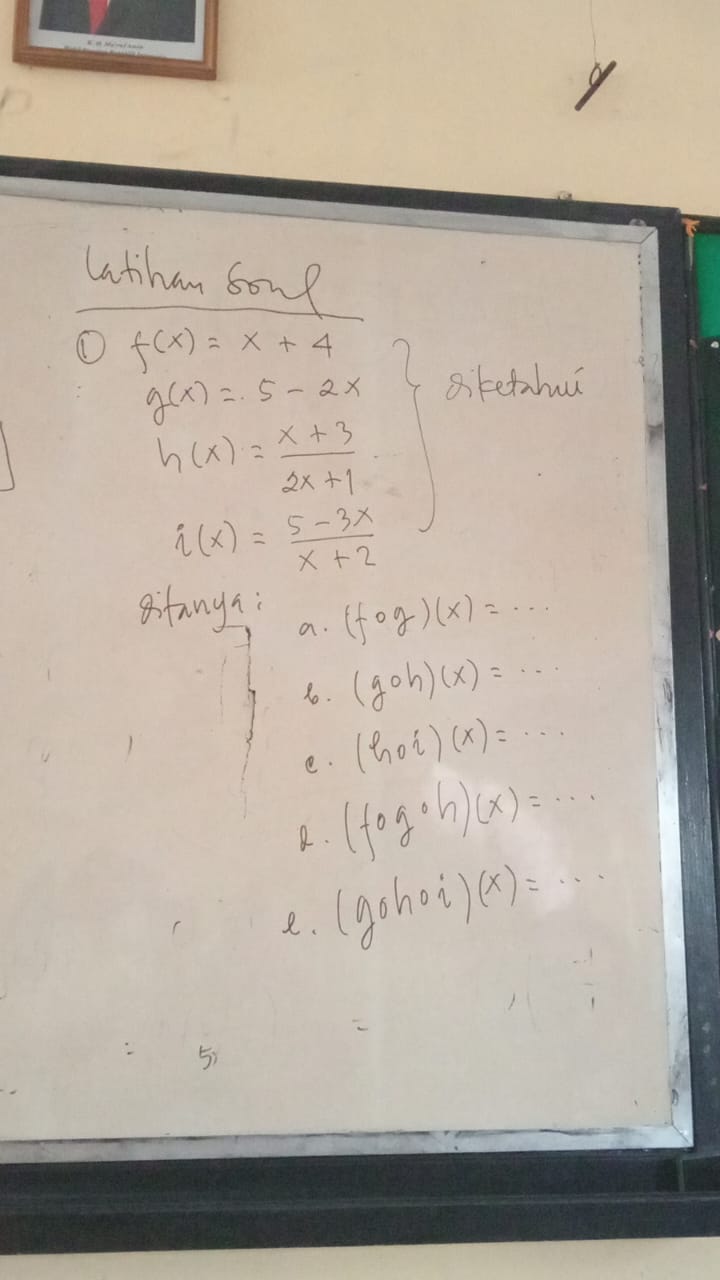 Latihan Soal
① f(x) = x + 4
g(x) = 5 - 2x
h(x) = x + 3 / 2x + 1
i(x) = 5 - 3x / x + 2
diketahui
ditanya:
a. (fog)(x) = ...
b. (goh)(x) = ...
c. (hoi)(x) = ...
d. (fogoh)(x) = ...
e. (gohoi)(x) = ...